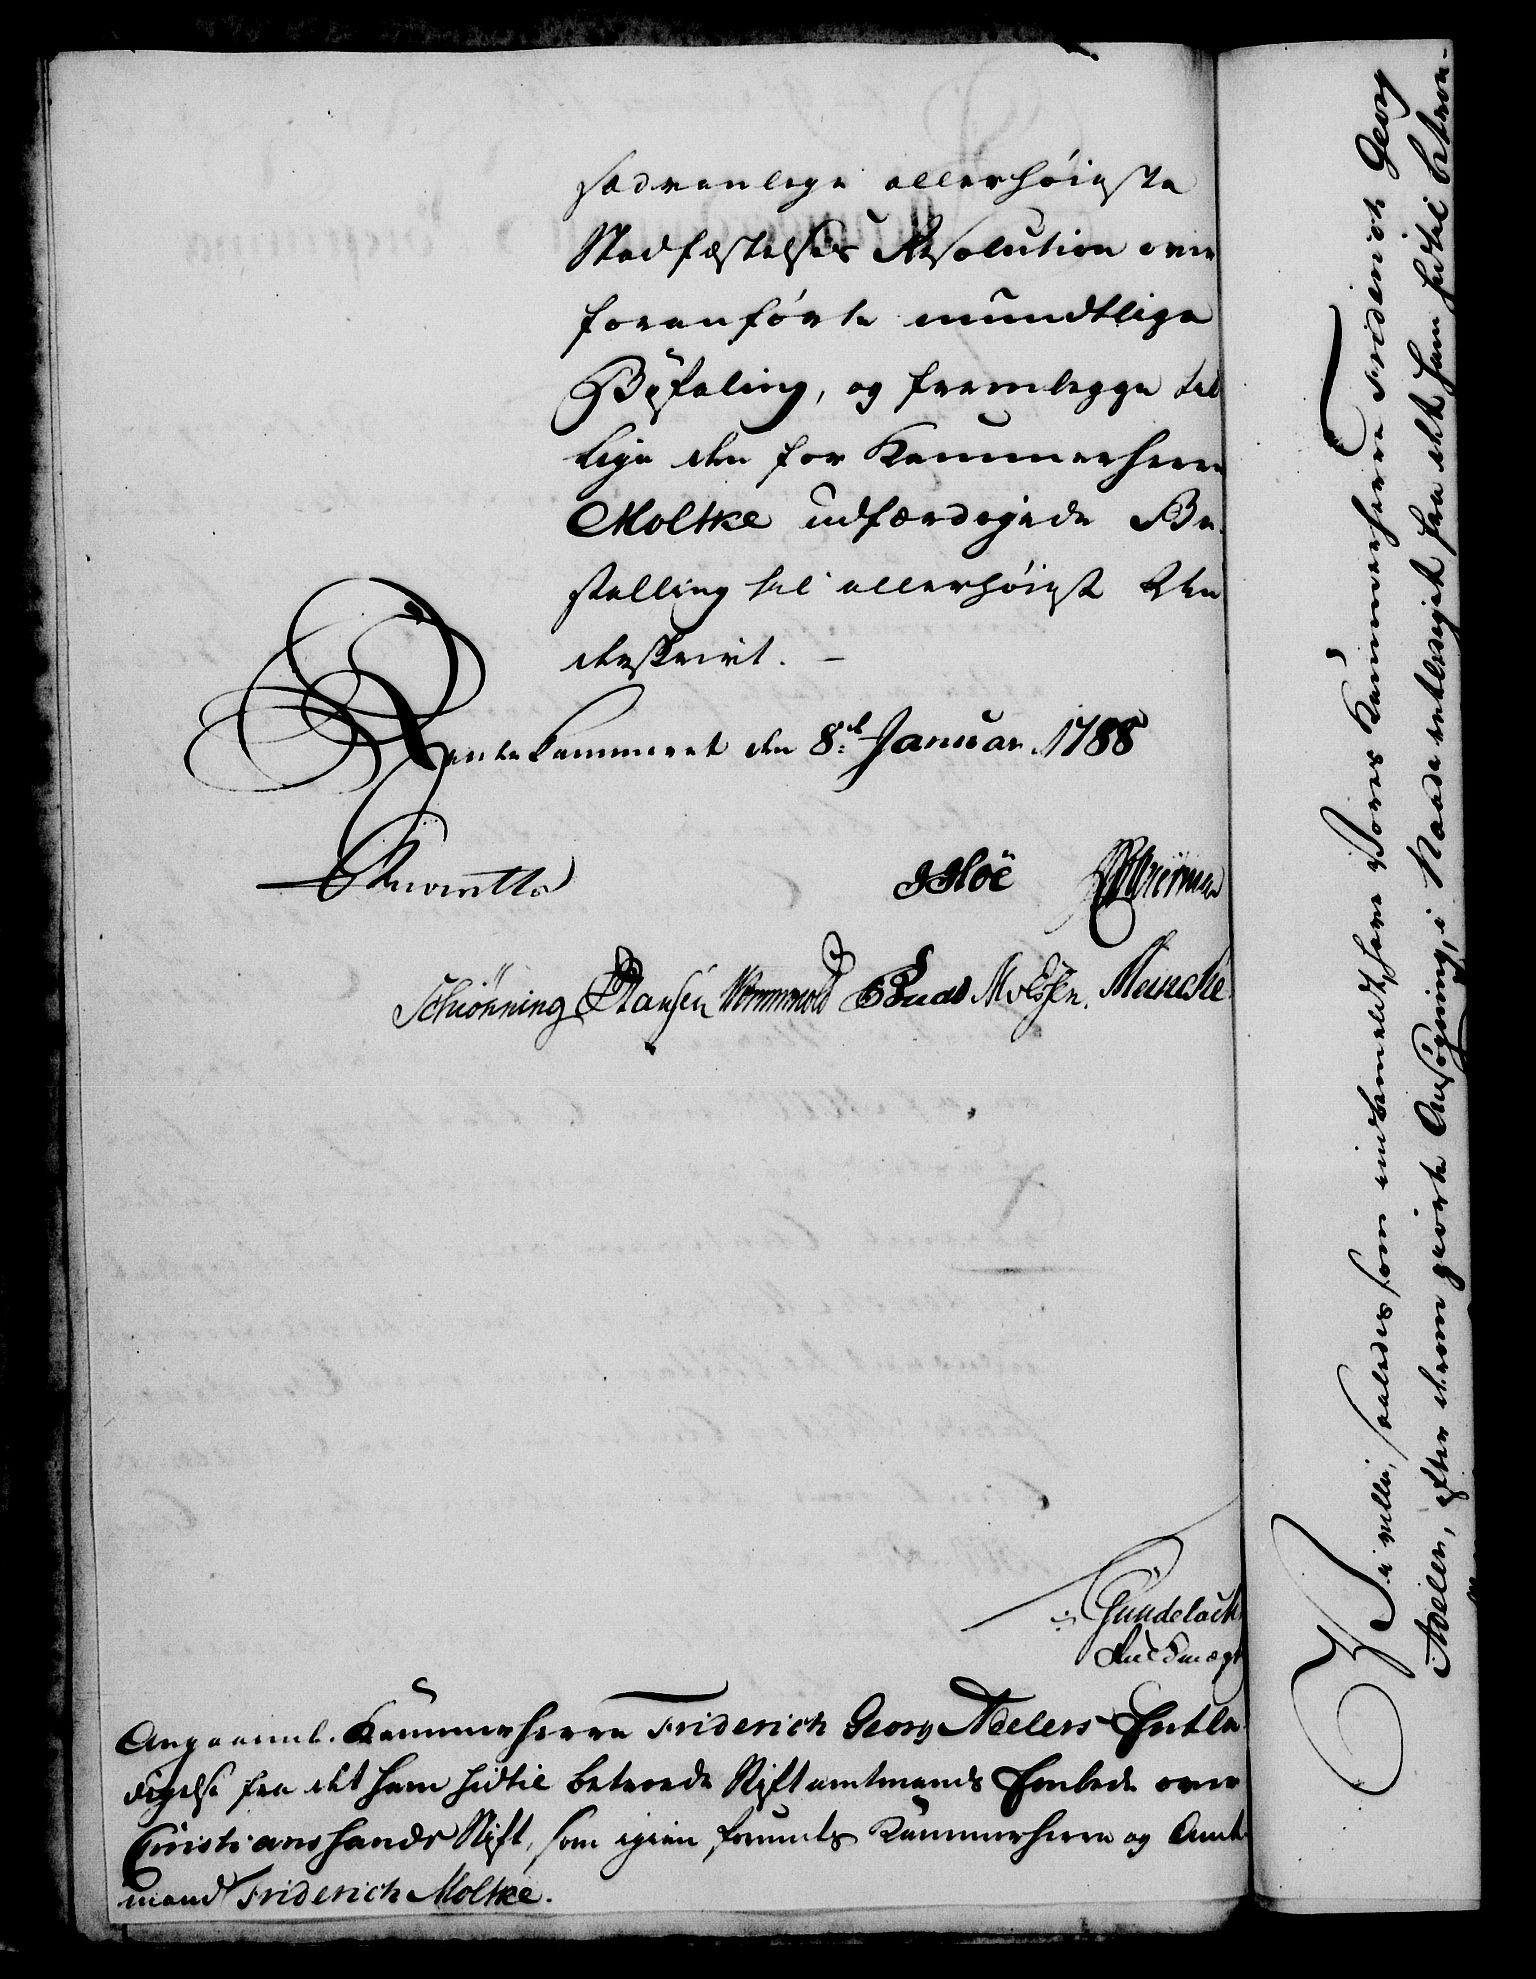 sædvanlige allerhöieste
Stadfæstelses Resolution over
foranförte mundtlige
Befaling, og fremlegge til
lige den for Kammerherre
Moltke udfærdigede Be-
stalling til allerhöiest Un
derskrivt. –
Rentekammeret den 8.de Januar 1788
Hoë
Schiönning Hansen Wormwold Meincke
Gundelach
Angaaende Kammerherre Friderich Georg Adelers Entle-
digelse fra det ham hidtil betroede Stiftamtmands Embede over
Christiansands Stift, som igien forundes Kammerherre og Amt-
mand Friderich Moltke.
Vi ville, saaledes som indbemeldt, have Vores Kammerherre Friderich Georg
Adeler, efter derom giorte Ansögning, i Naade entlediget fra det ham hidtil betroe-